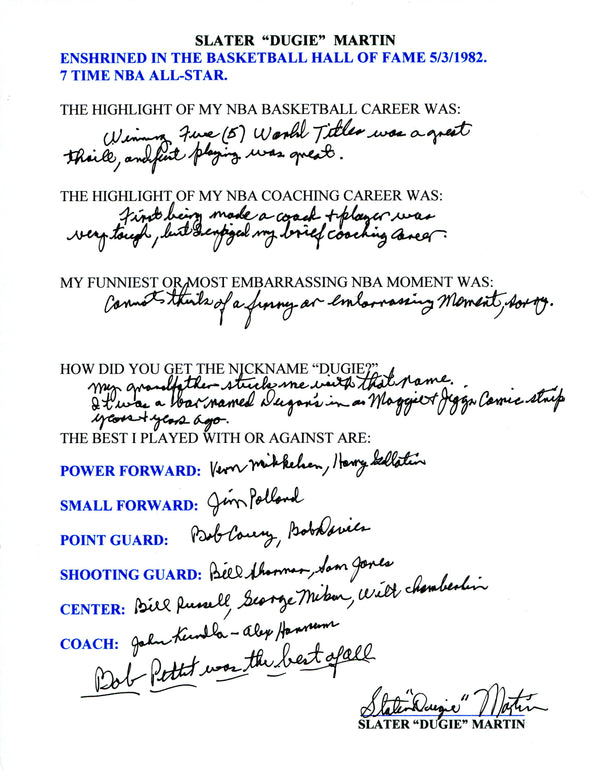 SLATER “DUGIE” MARTIN
ENSHRINED IN THE BASKETBALL HALL OF FAME 5/3/1982.
7 TIME NBA ALL-STAR.
THE HIGHLIGHT OF MY NBA BASKETBALL CAREER WAS:
Winning Five (5) World Titles was a great
thrill, and just playing was great.
THE HIGHLIGHT OF MY NBA COACHING CAREER WAS:
First being made a coach & player was
very tough, but I enjoyed my brief coaching career.
MY FUNNIEST OR MOST EMBARRASSING NBA MOMENT WAS:
Cannot think of a funny or embarrassing Moment, sorry.
HOW DID YOU GET THE NICKNAME “DUGIE?”
My grandfather stuck me with that name.
It was a bar named Dugan's in a Maggie & Jiggs Comic strip
years & years ago.
THE BEST I PLAYED WITH OR AGAINST ARE:
POWER FORWARD: Vern Mikkelsen, Harry Gallatin
SMALL FORWARD: Jim Pollard
POINT GUARD: Bob Cousy, Bob Davies
SHOOTING GUARD: Bill Sharman, Sam Jones
CENTER: Bill Russell, George Mikan, Wilt Chamberlin
COACH: John Kundla - Alex Hannum
Bob Pettit was the best of all
Slater "Dugie" Martin
SLATER “DUGIE” MARTIN